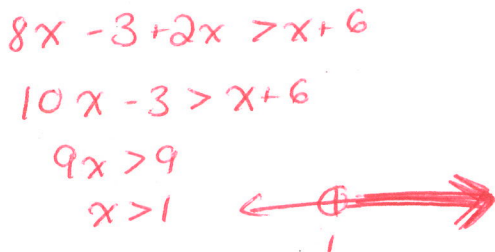 8x - 3 + 2x > x + 6
10x - 3 > x + 6
9x > 9
x > 1
1